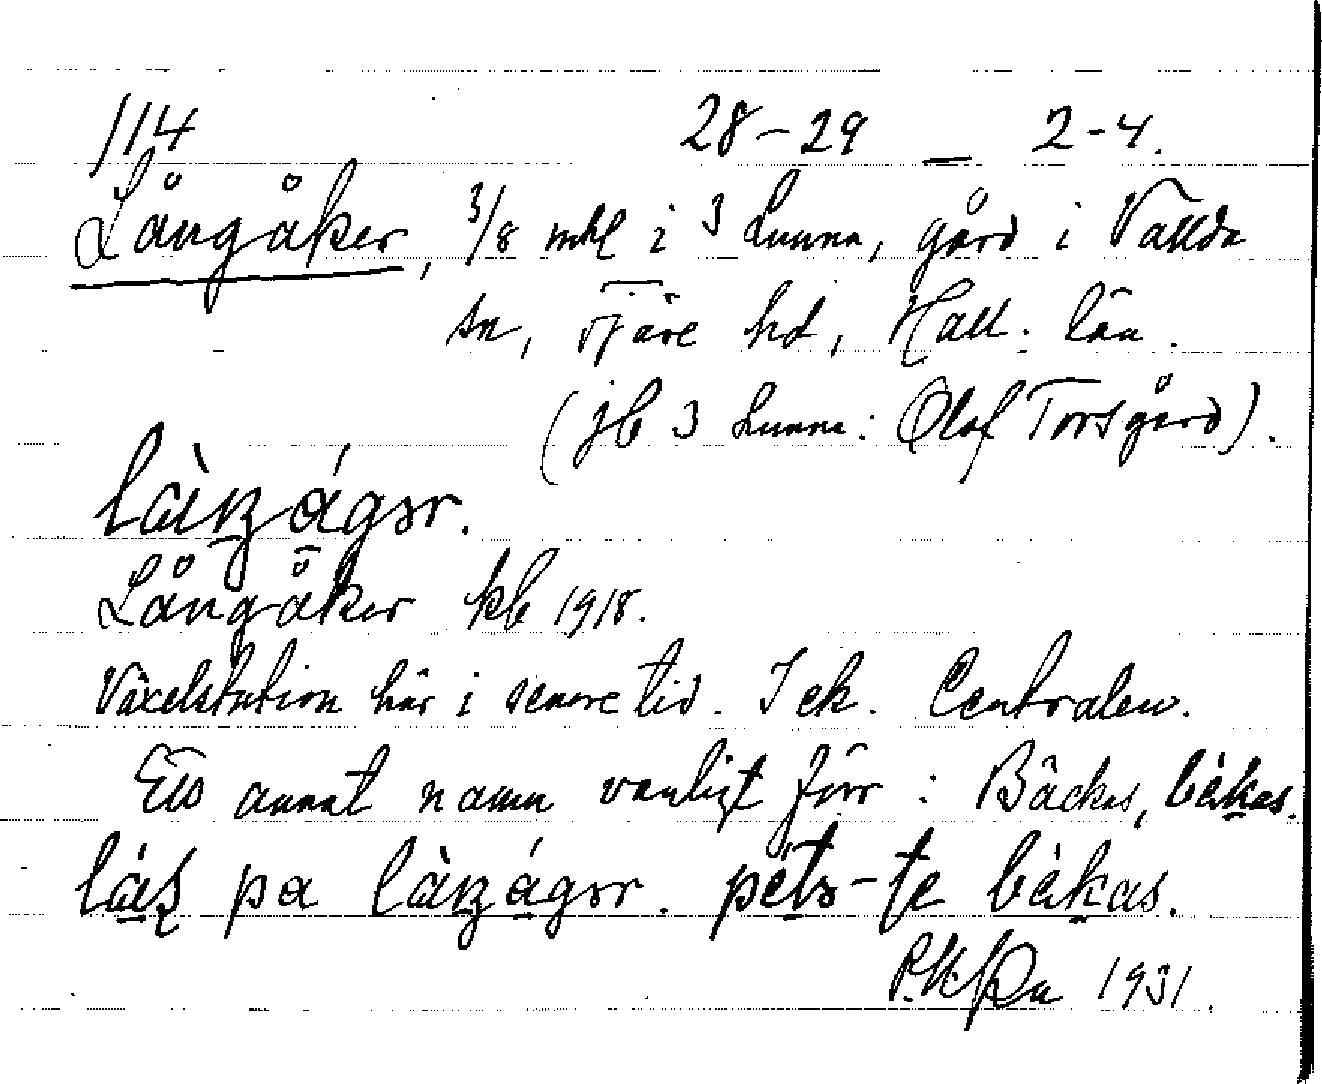 114 28-29 — 2-4.
Långåker, 3/8 mtl i 3 Lunna, gård i Vallda
sn, Fjäre hd, Hall. län.
(jb 3 Lunna: Olof Torsgård).
Långåker kb 1918.
Växelstation här i senare tid. I ek. Centralen.
Ett annat namn vanligt förr: Bäckas, bèkas.
pa bèkas.
1931.